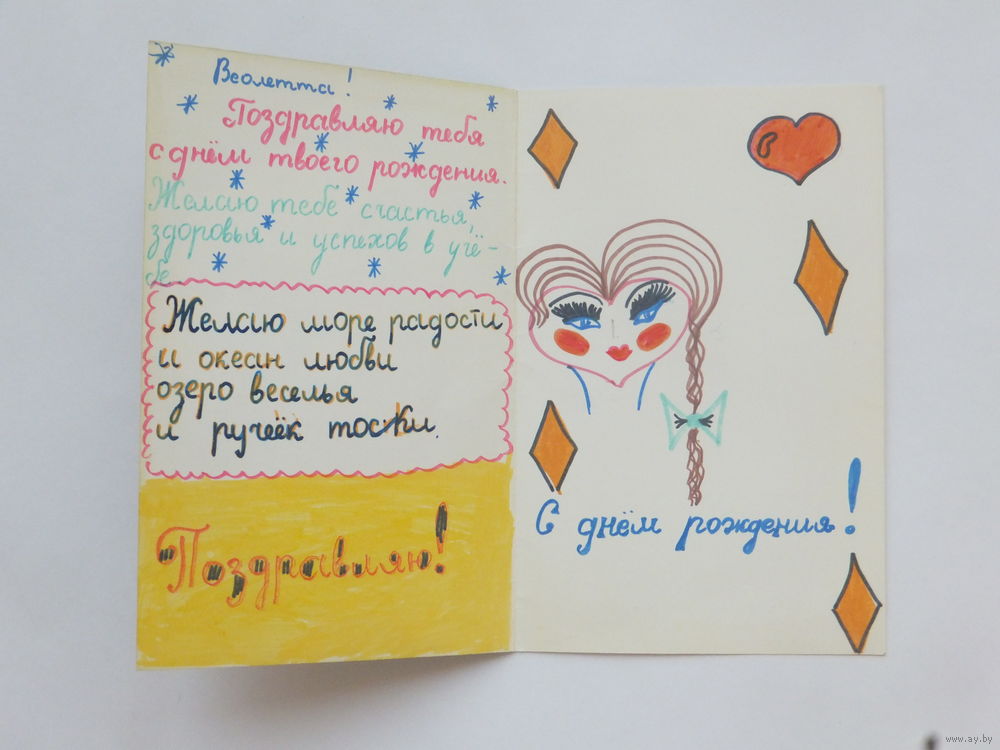 Веолетта!
Поздравляю тебя
с днём твоего рождения.
Желаю тебе счастья,
здоровья и успехов в учё-
бе.
Желаю море радости
и океан любви
озеро веселья
и ручеёк тоски.
Поздравляю!
В
С днём рождения!
www.ay.by